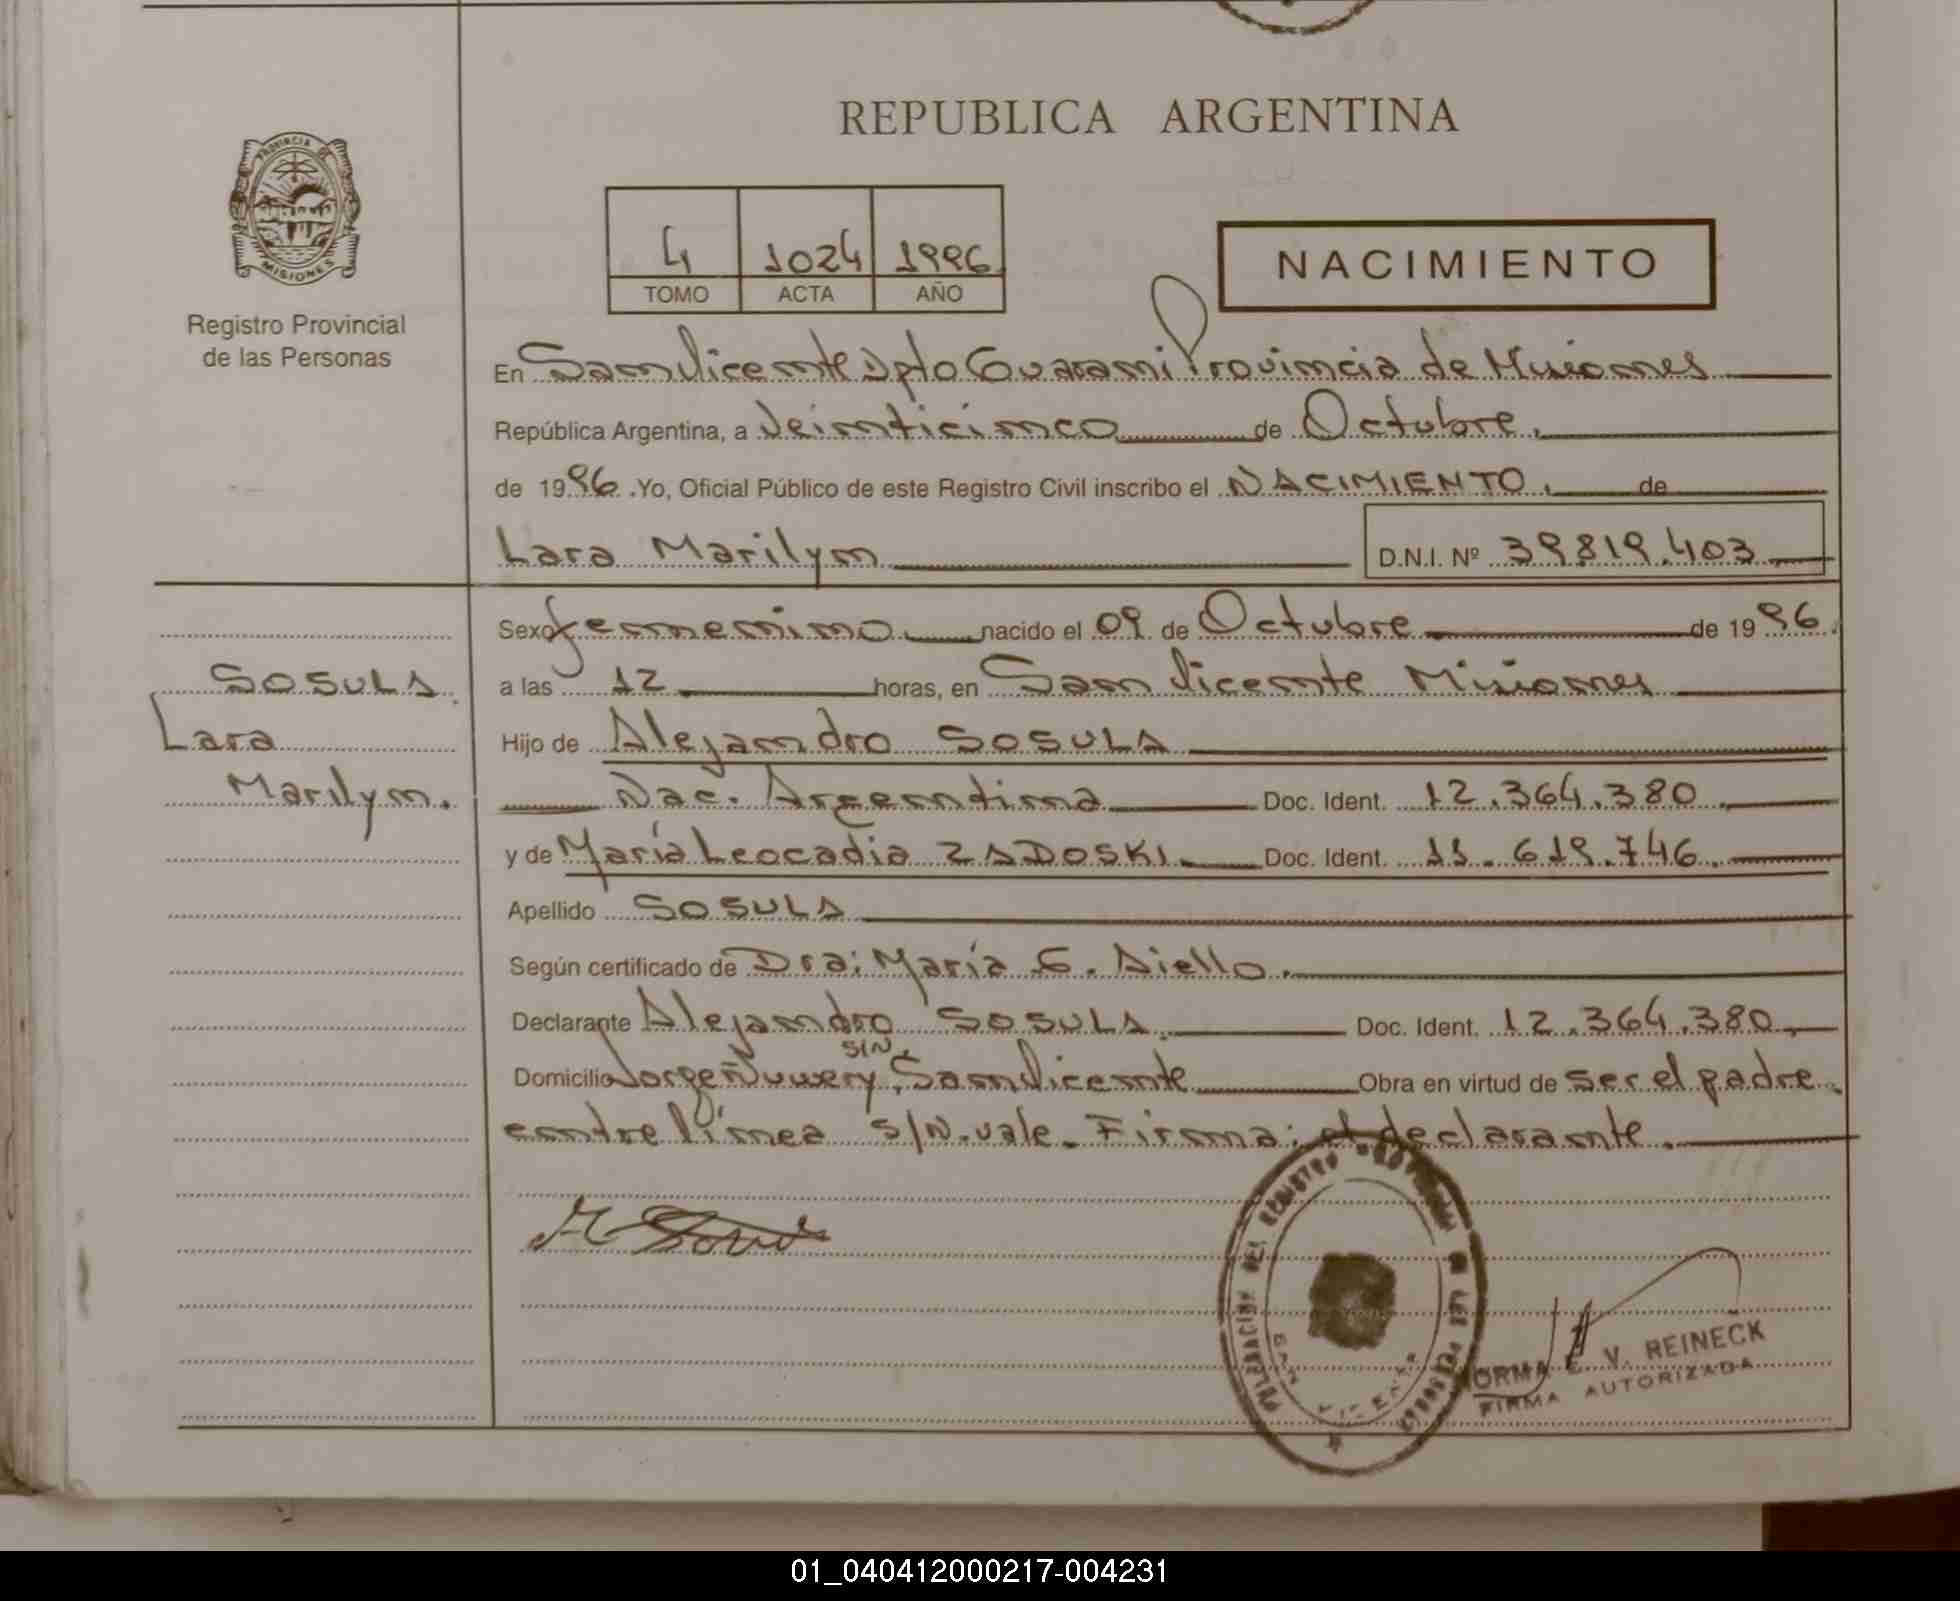 REPUBLICA ARGENTINA
PROVINCIA DE
MISIONES
Registro Provincial
de las Personas
4 1024 1996
TOMO ACTA AÑO
NACIMIENTO
En San Vicente Dpto Guarani Provincia de Misiones
República Argentina, a Veinticinco de Octubre.
de 1996. Yo, Oficial Público de este Registro Civil inscribo el NACIMIENTO. de
Lara Marilyn D.N.I. Nº 39.819.403
Sexo femenino nacido el 09 de Octubre de 1996.
SOSULA.
a las 12 horas, en San Vicente Misiones
Lara
Hijo de Alejandro SOSULA
Marilyn.
Nac. Argentina Doc. Ident. 12.364.380
y de María Leocadia ZADOSKI. Doc. Ident. 11.619.746.
Apellido SOSULA
Según certificado de Dra: María G. Aiello.
Declarante Alejandro SOSULA. Doc. Ident. 12.364.380.
S/N.
Domicilio Jorge, San Vicente Obra en virtud de ser el padre.
entre línea S/N. vale. Firma: el declarante.
DELEGACION DEL REGISTRO PROVINCIAL DE LAS PERSONAS
SAN VICENTE
E. V. REINECK
FIRMA AUTORIZADA
01_040412000217-004231